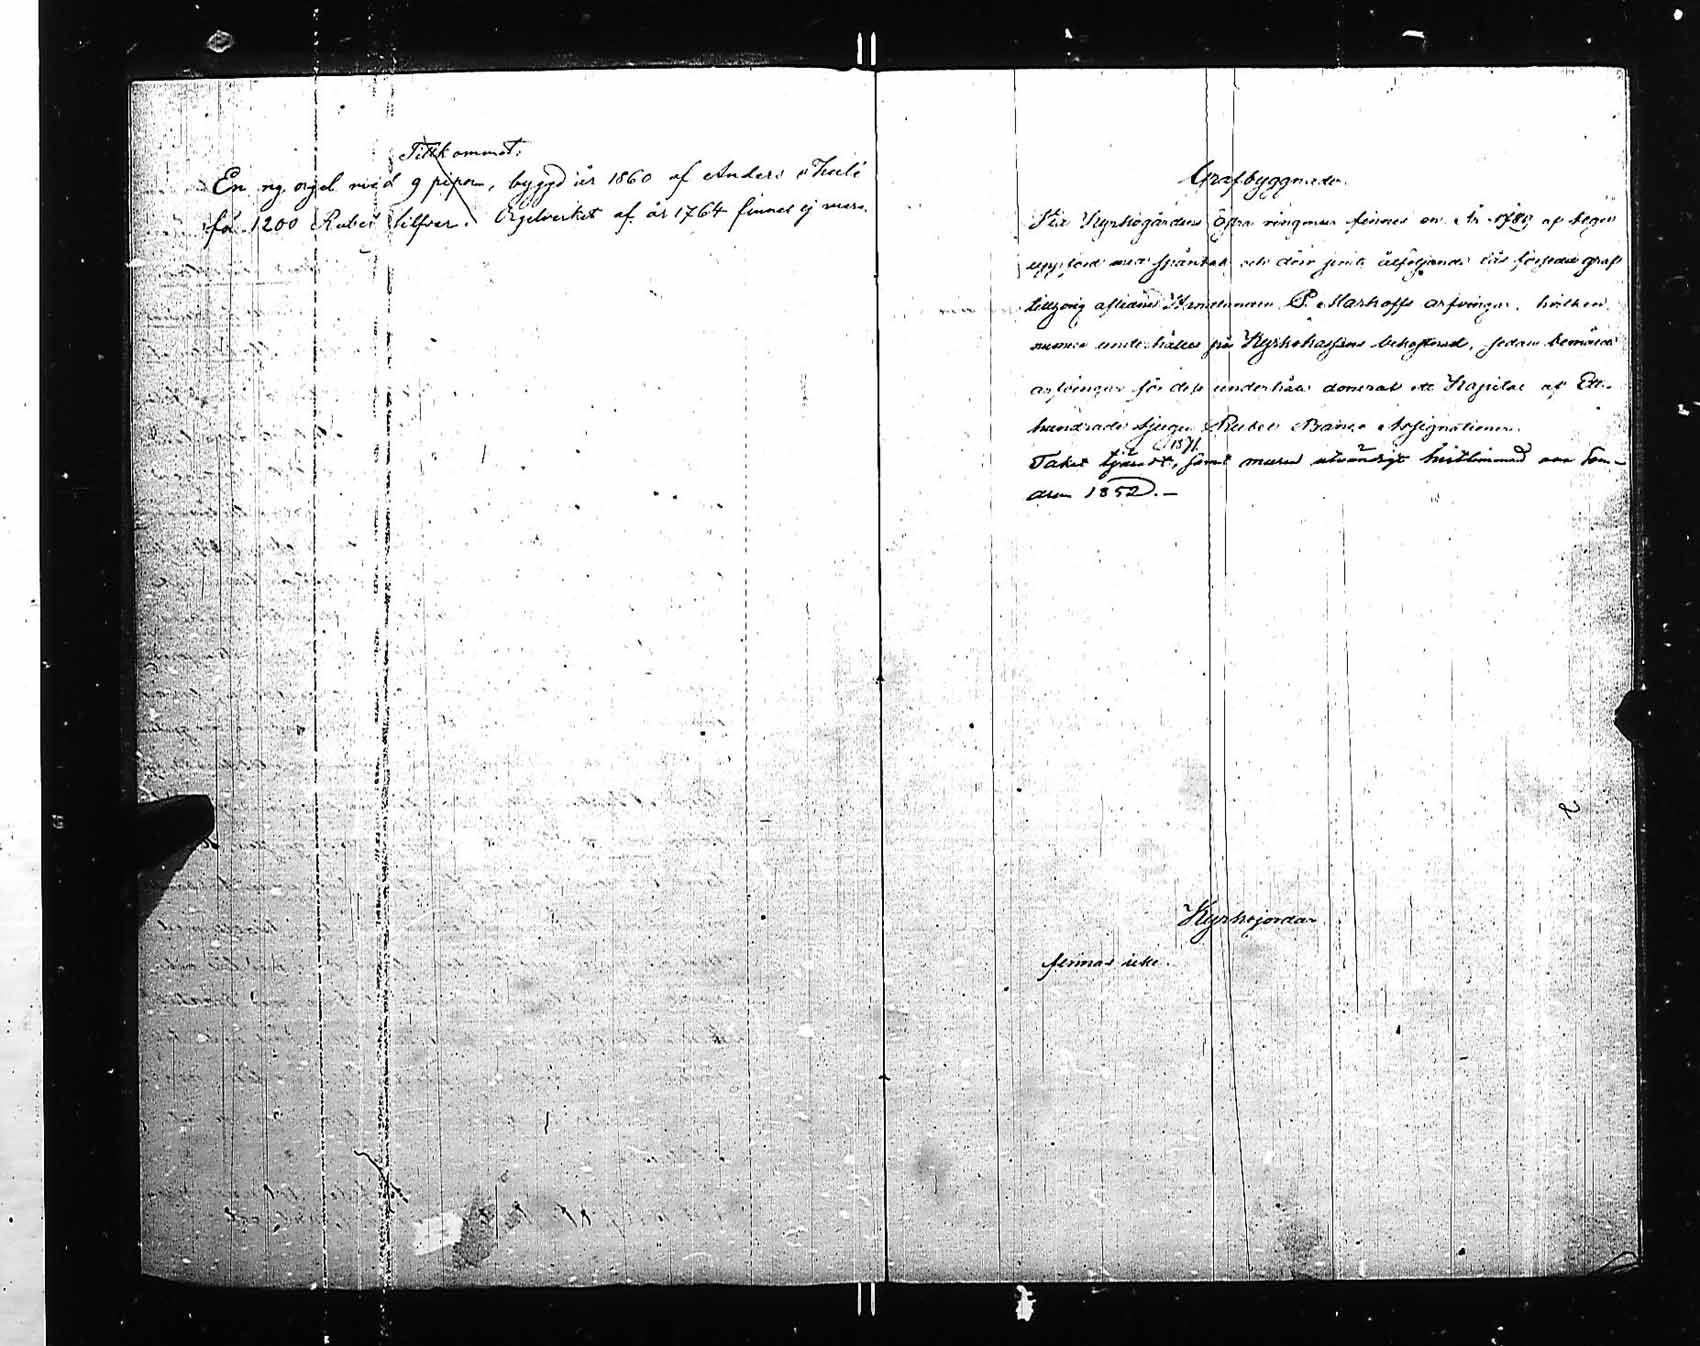 Tillkommet:
En ny orgel med 9 pipor, byggd år 1860 af Anders Thulé
för 1200 Rubel silfver. Orgelverket af år 1764 finnes ej mera.
Grafbyggnader.
Vid Kyrkogårdens östra ringmur finnes en År 1789 af tegel
uppförd med spåntak och dörr jemte åtföljande lås försedd graf
tillhörig aflidne Handelsmannen P. Marhoffs arfvingar, hvilken
numera underhålles på Kyrkokassans bekostnad, sedan bemälde
arfvingar för dess underhåll donerat ett Kapital af Ett-
hundrade sjugu Rubel Banco Assignationer.
1871
Taket tjäradt, samt muren utvändigt hvitlimmad om Som-
aren 1852.-
Kyrkojordar
finnas icke.